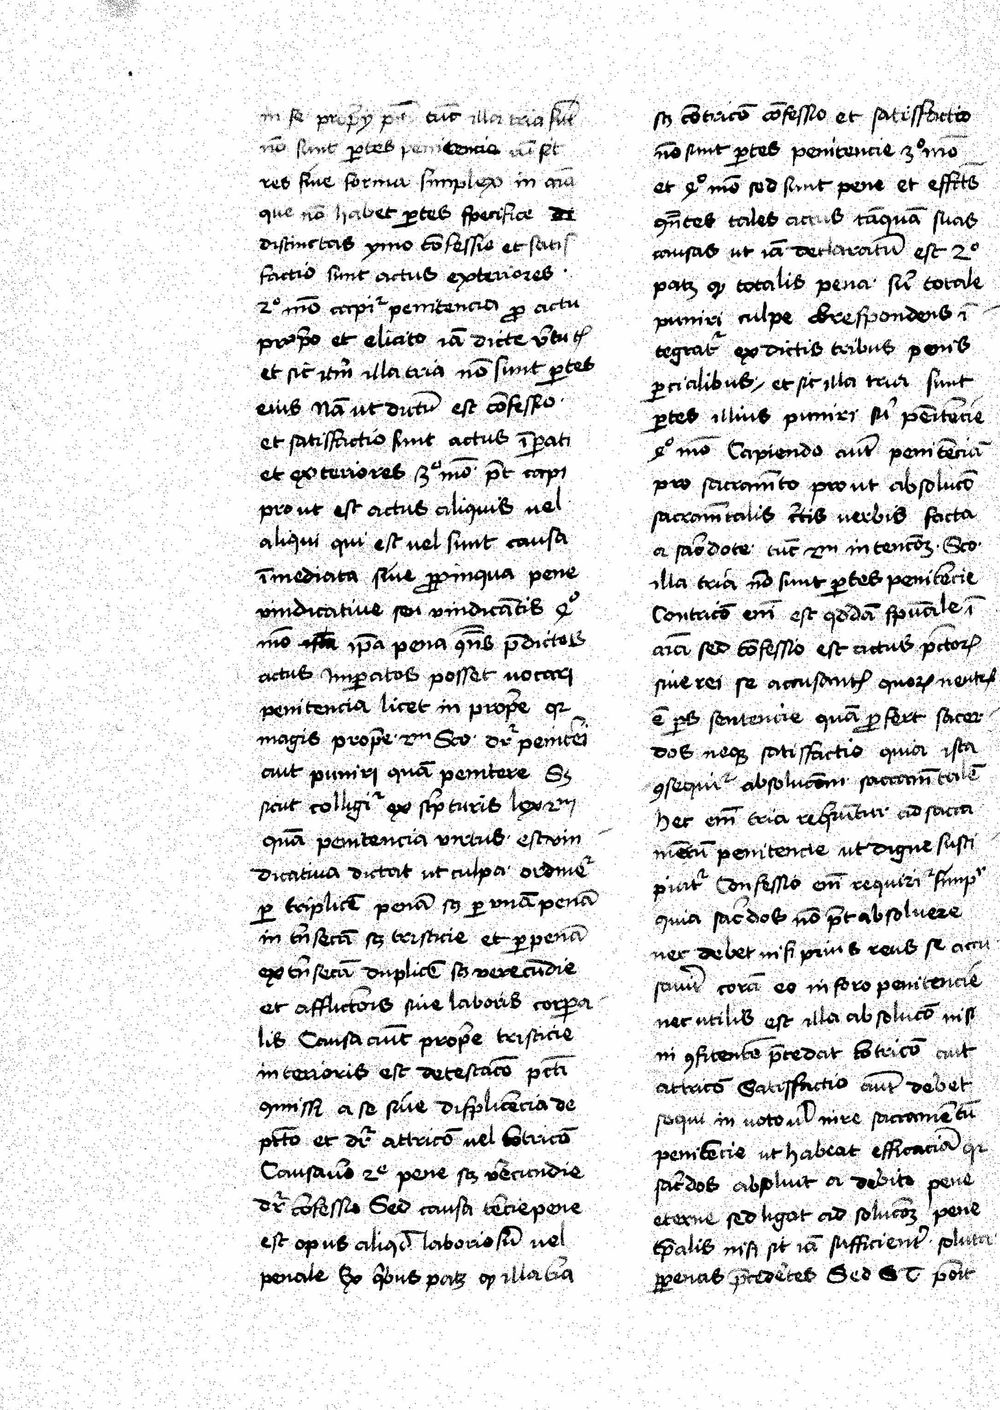 in se propry pᷓt tūc illa tria sūt
nō sunt ꝑtes penitencie cū sit
res siue forma simplex in aīa
que nō habet ꝑtes specifice
distinctas ymo cōfessio et satis
factio sunt actus exteriores
2º mō capiᷣ penitencia ꝓ actu
proprio et elicito iā dicte v̄tutꝭ
et sic itm̄ illa tria nō sunt ꝑtes
eius Nā ut dictū est cōfessio
et satisfactio sunt actus īꝑati
et exteriores 3º mō pt̄ capi
prout est actus aliquis uel
aliqui qui est uel sunt causa
īmediata siue ꝓpinqua pene
vindicatiue seu vindicātis 4º
mō ip̄a pena q̄ns p̄dictos
actus imꝑatos posset uocari
penitencia licet in propͤe qꝛ
magis propͤe 2m Sco dꝛ̄ penitēci
aut puniri quā penitere Sꝫ
sicut colligiᷣ ex sc̄pturis lex 2m
quā penitencia virtus est vin
dicatiua dictat ut culpa ordineᷣ
ꝑ triplicē penā sꝫ ꝑ vnā penā
intn̄secā sꝫ tristicie et ꝑ penā
extn̄secā duplicē sꝫ verecūdie
et afflictōis siue laboris corpa
lis Causa aūt propͤe tristicie
interioris est detestacō pctī
ꝯmissi a se siue displicēcia de
pctō et dꝛ̄ attricō uel cōtricō
Causa v̄o 2e pene sꝫ v̄ecūdie
dꝛ̄ cōfessio Sed causa t̄cie pene
est opus aliqď laboriosū uel
penale Ex q̄bus patꝫ ꝙ illa t̄a
sꝫ cōtricō cōfessio et satisfactio
nō sunt ꝑtes penitencie 3º mō
et 4º mō sed sunt pene et effc̄tꝰ
q̄ntes tales actus tāquā suas
causas ut iā declaratū est 2º
patꝫ ꝙ totalis pena siū totale
puniri culpe correspondens ī
tegratᷣ ex dictis tribus penis
ꝑcialibus et sic illa tria sunt
ꝑtes illius puniri siū penitēcie
4º mō Capiendo aūt penitēciā
pro sacramēto prout absolucō
sacramētalis c̄tis verbis facta
a sac̄dote tūc 2m intencōꝫ Sco
illa tria nō sunt ꝑtes penitēcie
Contricō em̄ est qd̄dā spūale ī
aīa sed cōfessio est actus pctōrꝭ
siue rei se accusantꝭ quoꝝ neutꝝ
ē ps̄ sentencie quā ꝓfert sacer
dos neqꝫ satisfactio quia ista
ꝯsequiᷣ absolucōem sacramētalē
hec em̄ tria requiruntur ad sacra
mētū penitencie ut digne susci
piatᷣ Confessio em̄ requiriᷣ simpᷣ
quia sac̄dos nō pt̄ absoluere
nec debet nisi prius reus se accu
sauͬit corā eo in foro penitencie
nec utilis est illa absolucō nisi
in ꝯfitente p̄cedat cōtricō aut
attricō Satisfactio aūt debet
sequi in uoto uł in re sacramētū
penitēcie ut habeat efficaciā qꝛ
sac̄dos absoluit a debito pene
eterne sed ligat ad solucōꝫ pene
tp̄alis nisi sit iā sufficienᷣ soluta
ꝑ penas p̄cedētes Sed S T ponit